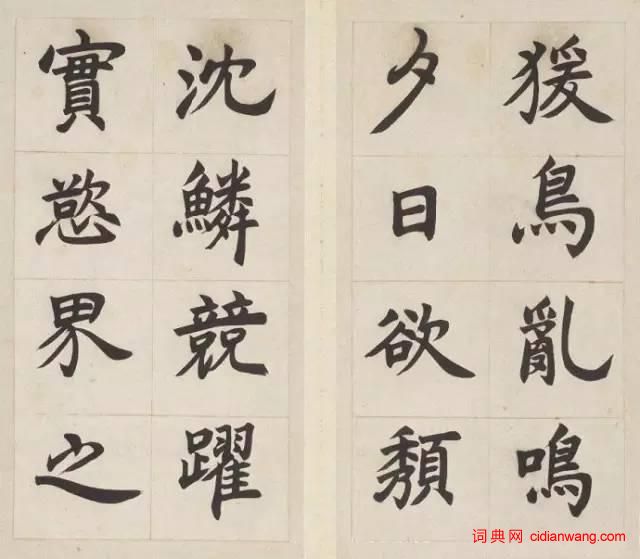 猨鳥亂鳴
夕日欲頽
沈鱗競躍
實慾界之
词典网 cidianwang.com